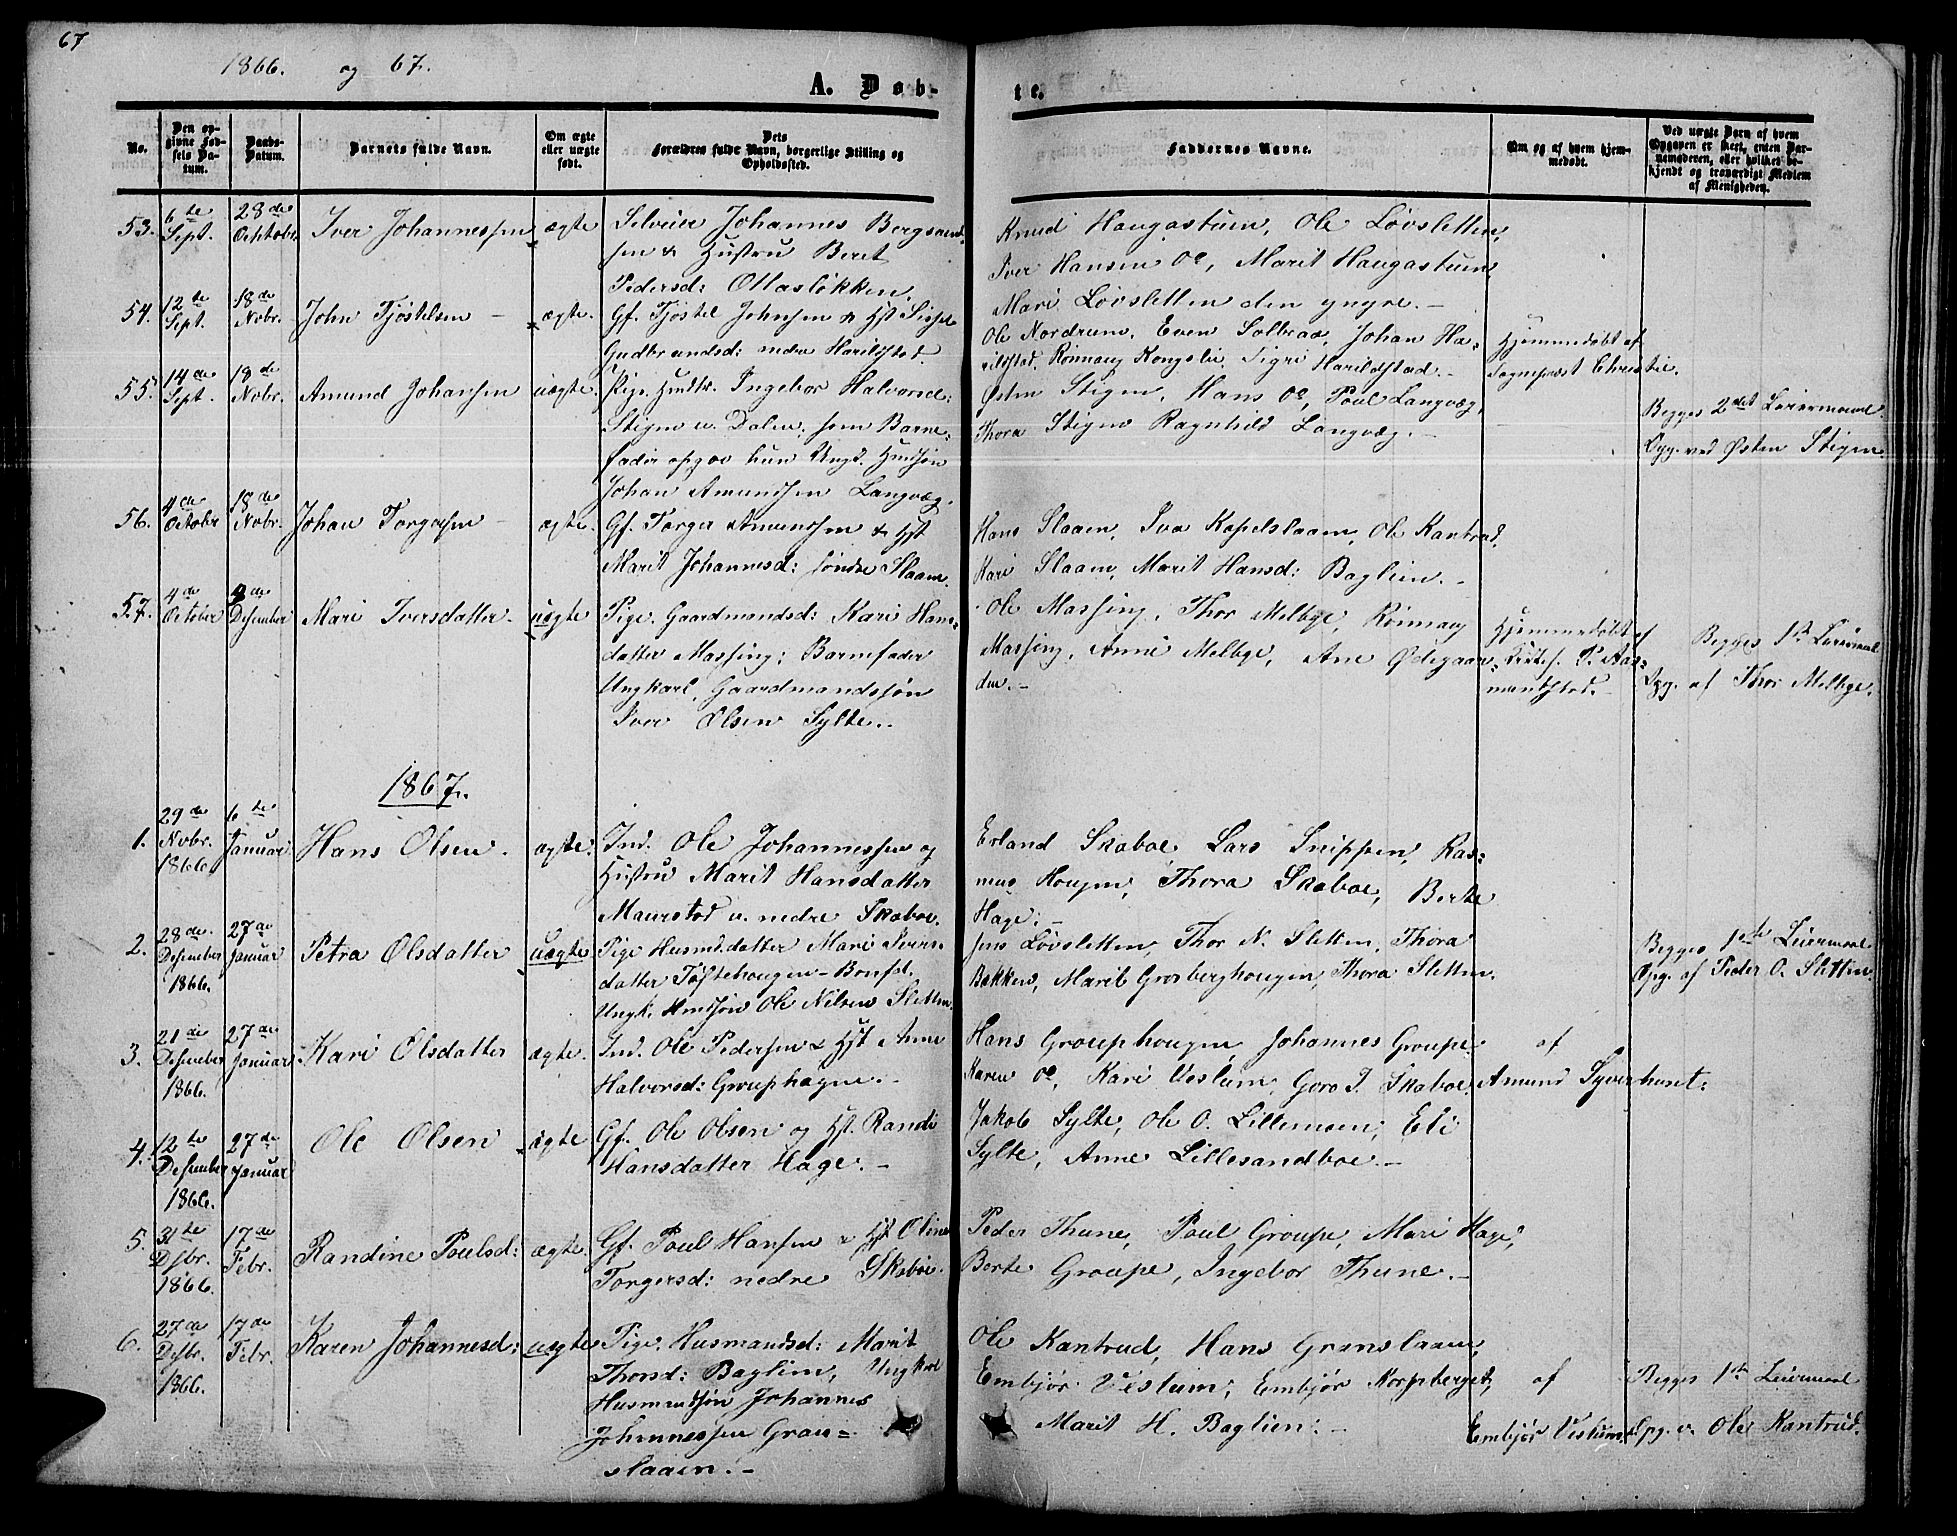 67
1866. og 67.
A. Døb-
te.
No.
Den opgivne Fødsels Datum.
Daabs-Datum.
Barnets fulde Navn.
Om ægte eller uægte født.
Dets Forældres fulde Navn, borgerlige Stilling og Opholdssted.
Faddernes Navne.
Om og af hvem hjemmedøbt.
Ved uægte Barn af hvem Opgaven er skeet, enten Barnemoderen, eller hvilket bekjendt og troværdigt Medlem af Menigheden.
53. 6te Sept. 28de Ochtober Iver Johannessen ægte
Selveier Johannes Bergsvend-
sen & Hustru Beret
Pedersd: Ottasløkken.
Knud Haugastuen, Ole Løvsletten,
Iver Hansen Oe, Marit Haugastuen,
Mari Løvsletten den yngre.-
54. 12te Sept. 18de Nobr. John Tjøstelsen - ægte.
Gf. Tjøstel Johnsen & Hst Sissel
Gudbrandsd: nedre Harildstad.
Ole Nordrum, Even Solbraa, Johan Ha-
rildstad, Rønnaug Kongslie, Sigri Harildstad.-
Hjemmedøbt af
Sognepræst Christie.
55. 14de Sept. 18de Nobr. Amund Johansen uægte
Pige. Hmdtr. Ingebor Halvorsd:
Stigen u. Dalen, som Barne-
fader opgav hun Ungk. Hmdsøn
Johan Amundsen Langvæg.
Østen Stigen, Hans Oe, Poul Langvæg,
Thora Stigen Ragnhild Langvæg.-
Begges 2det Leiermaal.
Opg. ved Østen Stigen.
56. 4de October 18de Nobr. Johan Torgersen - ægte.
Gf. Torger Amundsen & Hst
Marit Johannesd: søndre Slaaen.
Hans Slaaen, Iva Kapelslaaen, Ole Kantrud,
Kari Slaaen, Marit Hansd: Baglien.-
57. 4de October 2de Desember Mari Iversdatter. uægte
Pige. Gaardmandsd: Kari Hans-
datter Massing; Barnefader
Ungkarl, Gaardmandssøn
Iver Olsen Sylte..
Ole Massing, Thor Melbye, Rønnaug
Massing, Anne Melbye, Ane Ødegaar-
den.-
Hjemmedøbt af
Kirkes. P. Aas-
mundstad.-
Begges 1ste Leiermaal
Opg. af Thor Melbye.
1867.
1. 29de Nobr. 1866. 6te Januar Hans Olsen. ægte.
Ind. Ole Johannessen og
Hustru Marit Hansdatter
Maurstad u. nedre Skaboe.
Erland Skaboe, Lars Snippen, Ras-
mus Hougen, Thora Skaboe, Berte
Hage:-
2. 28de Desember 1866. 27de Januar Petra Olsdatter uægte
Pige Husmd.datter Mari Ivers-
datter Toftehougen - Barnfd.
Ungk. Hmdsøn Ole Nilsen Sletten.
Jens Løvsletten, Thor N. Sletten, Thora
Bakken, Marit Grosberghougen, Thora Sletten.
Begges 1ste Leiermaal
Opg. af Peder O. Sletten.
3. 21de Desember 1866. 27de Januar Kari Olsdatter ægte.
Ind. Ole Pedersen & Hst Anne
Halvorsd: Grouphagen.-
Hans Grouphougen, Johannes Groupe
Karen Oe, Kari Veslum, Goro T. Skaboe.
af
Amund Syverhuset.
4. 12te Desember 1866. 27de Januar Ole Olsen ægte
Gf. Ole Olsen og Hst. Randi
Hansdatter Hage.-
Jakob Sylte, Ole O. Lillemoen, Eli
Sylte, Anne Lillesandboe.-
5. 31te Dsbr. 1866. 17de Febr. Randine Poulsd: ægte.
Gf. Poul Hansen & Hst Oline
Torgersd: nedre Skaboe.
Peder Thune, Poul Groupe, Mari Hage,
Berte Groupe, Ingebor Thune.-
6. 27de Dsbr. 1866. 17de Febr. Karen Johannesd: uægte
Pige. Husmandsd: Marit
Thorsd: Baglien, Ungkarl
Husmandsøn Johannes
Johannessen Gran-
slaaen.-
Ole Kantrud, Hans Granslaaen,
Embjør Veslum, Embjør Norpberget,
Marit H. Baglien:-
af
Embjør Veslum.
Begges 1ste Leiermaal
Opg. v. Ole Kantrud.